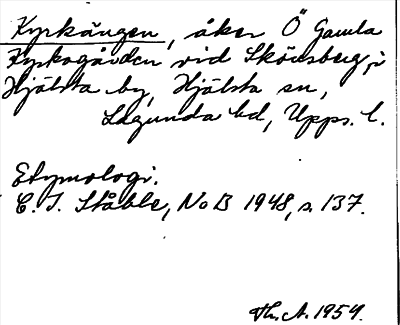 Kyrkängen, åker Ö Gamla
Kyrkogården vid Skörsberg, i
Hjälsta by, Hjälsta sn,
Lagunda hd, Upps. l.
Etymologi.
C. I. Ståhle, NoB 1948, s. 137.
Th. A. 1954.